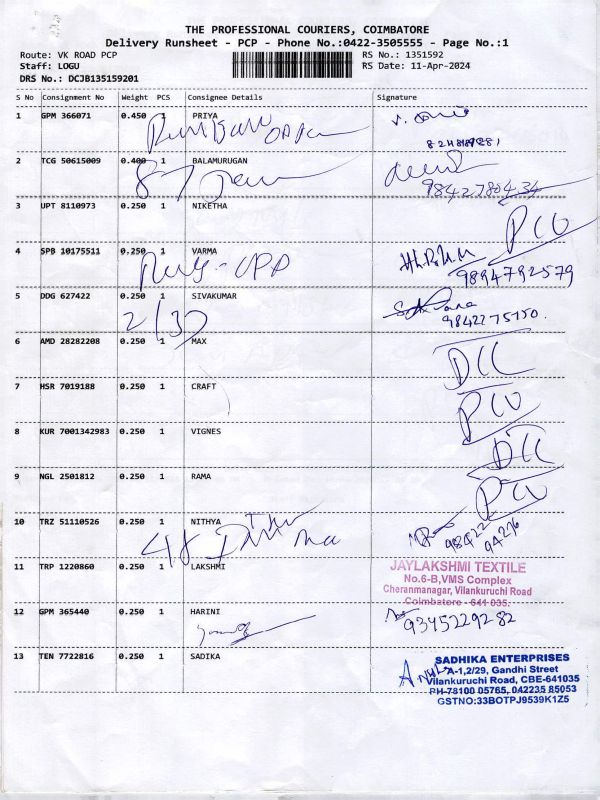 THE PROFESSIONAL COURIERS, COIMBATORE
Delivery Runsheet - PCP - Phone No.:0422-3505555 - Page No.:1
Route: VK ROAD PCP RS No.: 1351592
Staff: LOGU RS Date: 11-Apr-2024
DRS No.: DCJB135159201
S No Consignment No Weight PCS Consignee Details Signature
1 GPM 366071 0.450 1 PRIYA
2 TCG 50615009 0.400 1 BALAMURUGAN
9842780434
3 UPT 8110973 0.250 1 NIKETHA
4 SPB 10175511 0.250 1 VARMA
9894792579
5 DDG 627422 0.250 1 SIVAKUMAR
2/30 9842275150.
6 AMD 28282208 0.250 1 MAX
7 HSR 7019188 0.250 1 CRAFT
8 KUR 7001342983 0.250 1 VIGNES
9 NGL 2501812 0.250 1 RAMA
10 TRZ 51110526 0.250 1 NITHYA
98422
94276
11 TRP 1220860 0.250 1 LAKSHMI
JAYLAKSHMI TEXTILE
No.6-B,VMS Complex
Cheranmanagar, Vilankuruchi Road
Coimbatore - 641 035.
12 GPM 365440 0.250 1 HARINI
9345229282
13 TEN 7722816 0.250 1 SADIKA
SADHIKA ENTERPRISES
A-1,2/29, Gandhi Street
Vilankuruchi Road, CBE-641035
PH-78100 05765, 042235 85053
GSTNO:33BOTPJ9539K1Z5